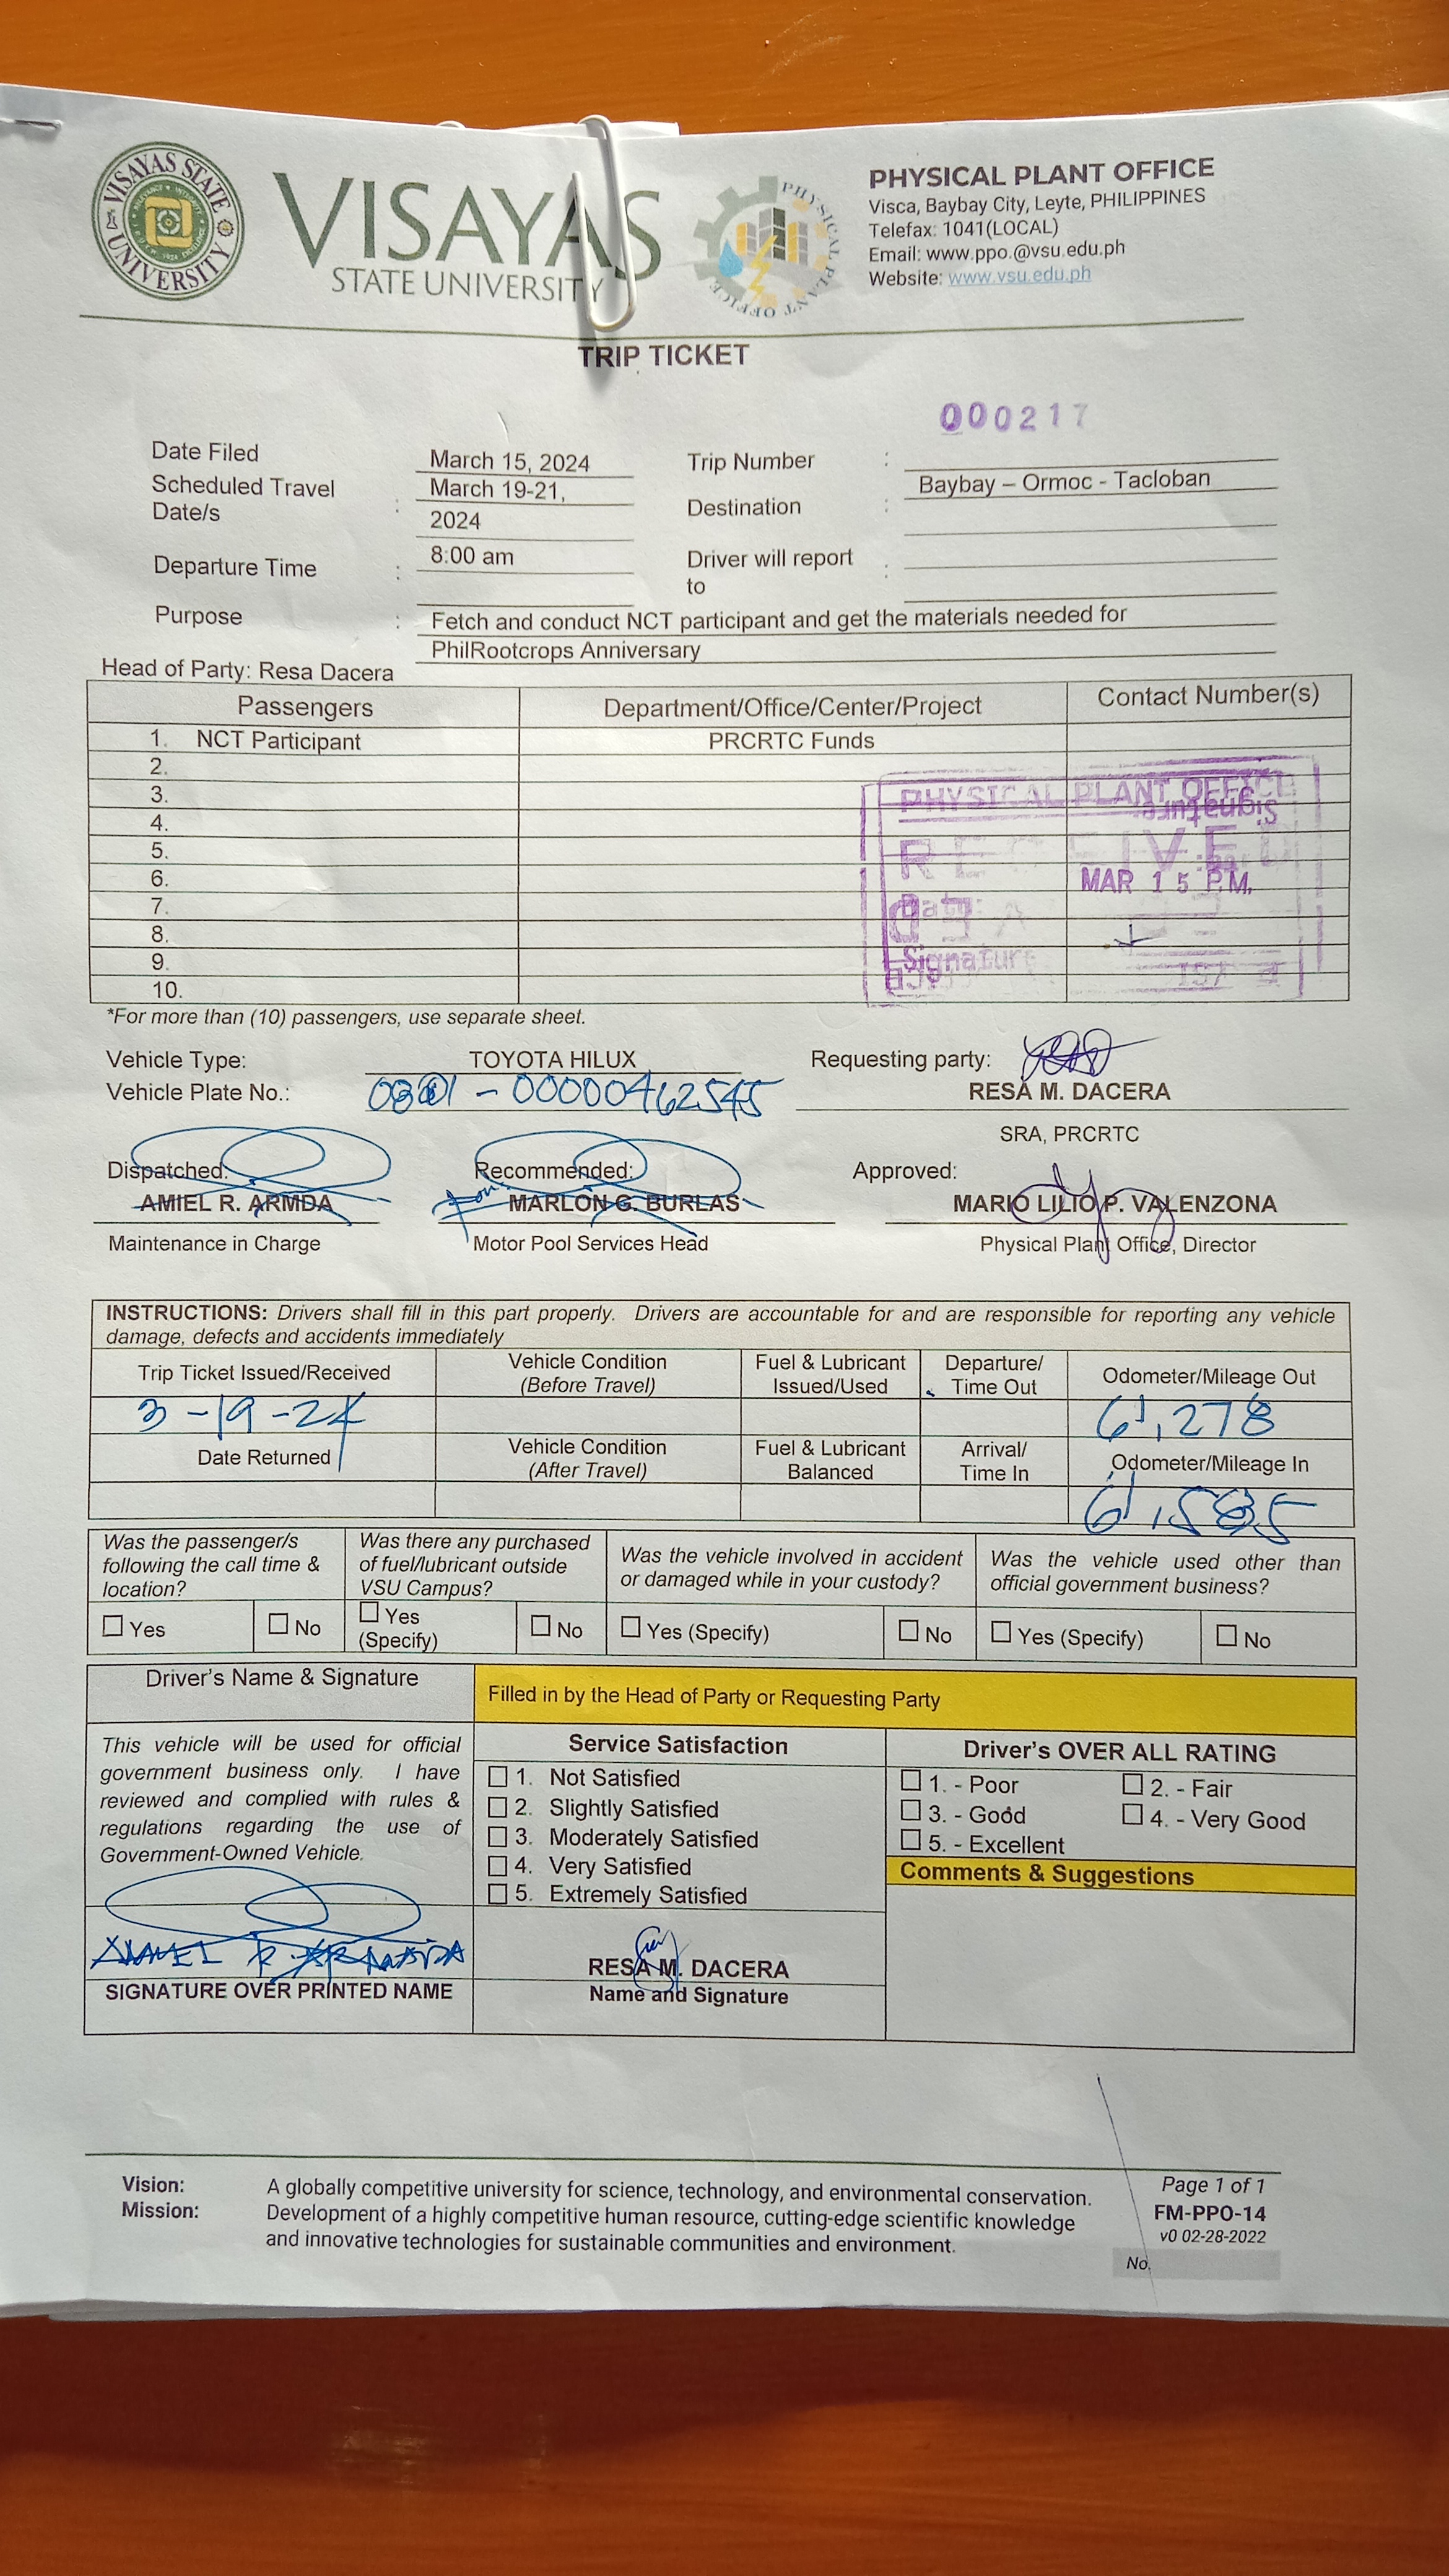 VISAYAS STATE UNIVERSITY
VISAYAS
STATE UNIVERSITY
PHYSICAL PLANT OFFICE
PHYSICAL PLANT OFFICE
Visca, Baybay City, Leyte, PHILIPPINES
Telefax: 1041(LOCAL)
Email: www.ppo.@vsu.edu.ph
Website: www.vsu.edu.ph
TRIP TICKET
000217
Date Filed March 15, 2024 Trip Number :
Scheduled Travel Date/s : March 19-21, 2024 Destination : Baybay – Ormoc - Tacloban
Departure Time : 8:00 am Driver will report to :
Purpose : Fetch and conduct NCT participant and get the materials needed for
PhilRootcrops Anniversary
Head of Party: Resa Dacera
Passengers Department/Office/Center/Project Contact Number(s)
1. NCT Participant PRCRTC Funds
2.
3.
4.
5.
6.
7.
8.
9.
10.
PHYSICAL PLANT OFFICE
RECEIVED
MAR 15 P.M.
Date:
Signature
*For more than (10) passengers, use separate sheet.
Vehicle Type: TOYOTA HILUX Requesting party:
Vehicle Plate No.: - 00000462545 RESA M. DACERA
SRA, PRCRTC
Dispatched: Recommended: Approved:
AMIEL R. ARMDA for MARLON G. BURLAS MARIO LILIO P. VALENZONA
Maintenance in Charge Motor Pool Services Head Physical Plant Office, Director
INSTRUCTIONS: Drivers shall fill in this part properly. Drivers are accountable for and are responsible for reporting any vehicle
damage, defects and accidents immediately
Trip Ticket Issued/Received Vehicle Condition (Before Travel) Fuel & Lubricant Issued/Used Departure/ Time Out Odometer/Mileage Out
3-19-24 61,278
Date Returned Vehicle Condition (After Travel) Fuel & Lubricant Balanced Arrival/ Time In Odometer/Mileage In
61,585
Was the passenger/s following the call time & location? Was there any purchased of fuel/lubricant outside VSU Campus? Was the vehicle involved in accident or damaged while in your custody? Was the vehicle used other than official government business?
Yes No Yes (Specify) No Yes (Specify) No Yes (Specify) No
Driver's Name & Signature Filled in by the Head of Party or Requesting Party
This vehicle will be used for official
government business only. I have
reviewed and complied with rules &
regulations regarding the use of
Government-Owned Vehicle.
Service Satisfaction
1. Not Satisfied
2. Slightly Satisfied
3. Moderately Satisfied
4. Very Satisfied
5. Extremely Satisfied
Driver's OVER ALL RATING
1. - Poor 2. - Fair
3. - Good 4. - Very Good
5. - Excellent
Comments & Suggestions
SIGNATURE OVER PRINTED NAME
RESA M. DACERA
Name and Signature
Vision: A globally competitive university for science, technology, and environmental conservation.
Mission: Development of a highly competitive human resource, cutting-edge scientific knowledge
and innovative technologies for sustainable communities and environment.
Page 1 of 1
FM-PPO-14
v0 02-28-2022
No.